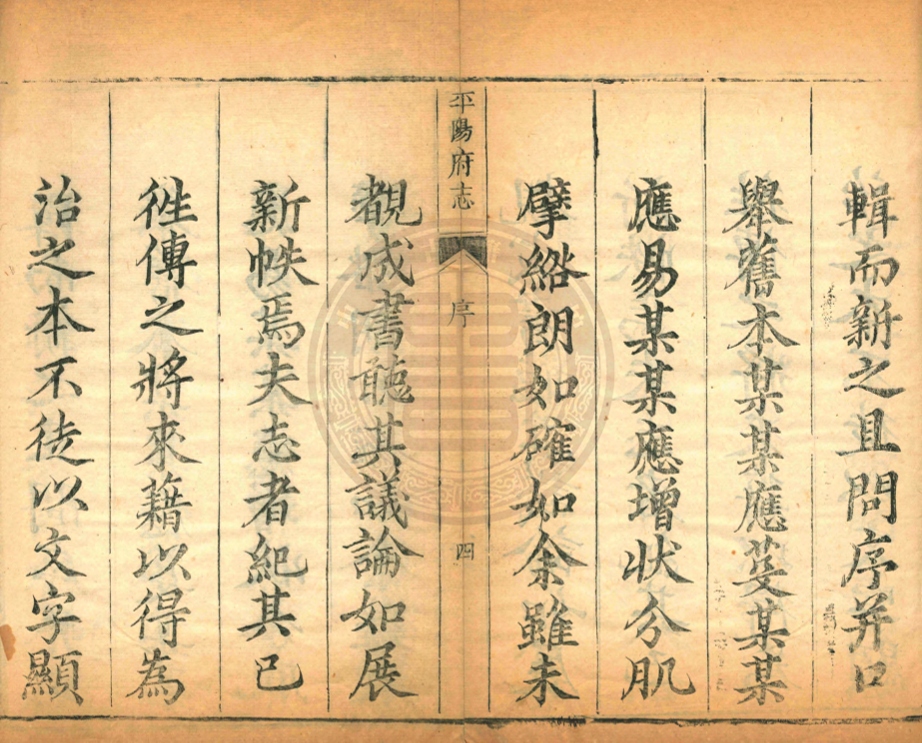 輯而新之且問序并口
舉舊本某某應芟某某
應易某某應增狀分肌
擘綹朗如確如余雖未
平陽府志
序
四
覩成書聽其議論如展
新帙焉夫志者紀其已
徃傳之將來藉以得為
治之本不徒以文字顯